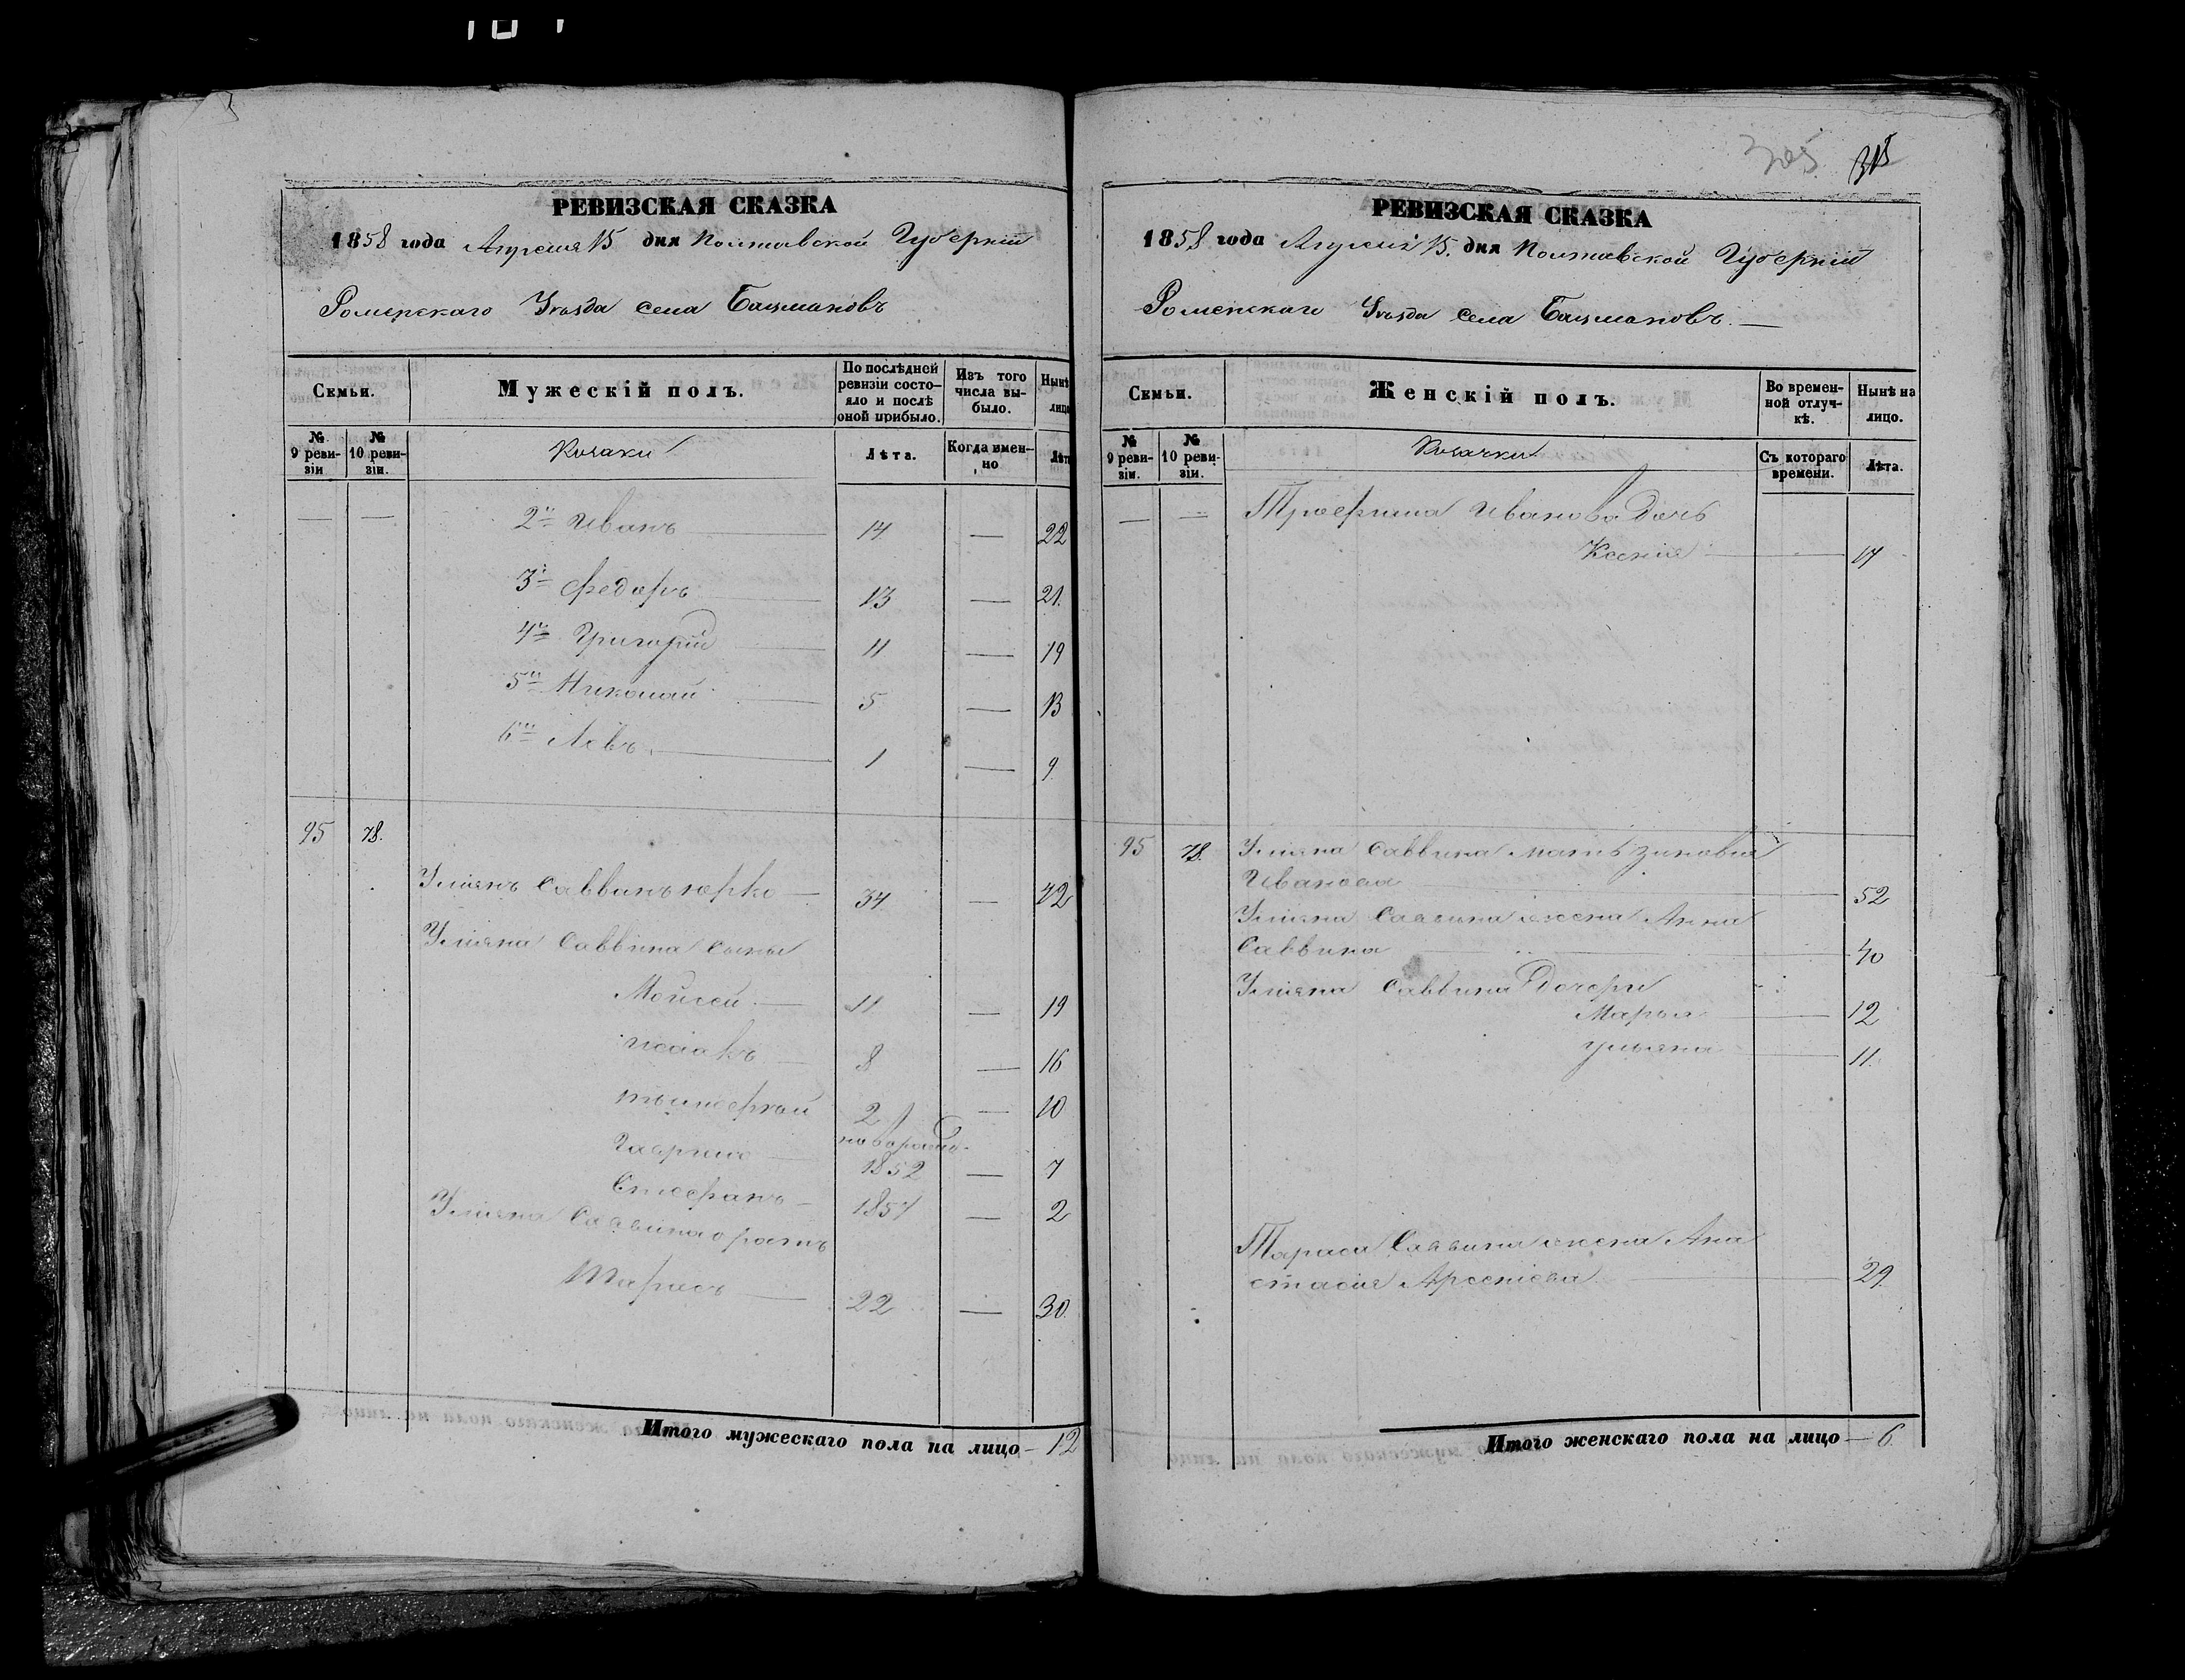 РЕВИЗСКАЯ СКАЗКА
1858 года Апреля 15 дня Полтавской Губерніи
Роменскаго Уѣзда села Бацмановъ
Семьи.
Мужескій полъ.
По послѣдней ревизіи состояло и послѣ оной прибыло.
Изъ того числа выбыло.
Нынѣ лицо
№ 9 ревизіи
№ 10 ревизіи.
Козаки
Лѣта.
Когда именно
Лѣт
— — 2й Иванъ — 14 — 22
3й Федоръ — 13 — 21.
4й Григорій — 11 — 19
5й Николай — 5 — 13
6й Левъ — 1 — 9
95 78.
Уліянъ Саввинъ Юрко — 34 — 42
Уліяна Саввина сыны
Мойсей — 11 — 19
Исаакъ — 8 — 16
2 — 10
Гаврило — новорожд. 1852 — 7
Стефанъ — 1857 — 2
Уліяна Саввина братъ
Тарасъ — 22 — 30.
Итого мужескаго пола на лицо — 12
305 315
РЕВИЗСКАЯ СКАЗКА
1858 года Апреля 15. дня Полтавской Губерніи
Роменскаго Уѣзда села Бацмановъ. —
Семьи.
Женскій полъ.
Во временной отлучкѣ.
Нынѣ на лицо.
№ 9 ревизіи.
№ 10 ревизіи.
Козачки
Съ котораго времени.
Лѣта.
— — Трофима Иванова дочь
Ксенія — 17
95 78. Уліяна Саввина мать Зиновія
Иванова — 52
Уліяна Саввина жена Анна
Саввина — 40
Уліяна Саввина дочери
Марья — 12
Ульяна — 11.
Тараса Саввина жена Ана
стасія Арсеніева — 29.
Итого женскаго пола на лицо — 6.